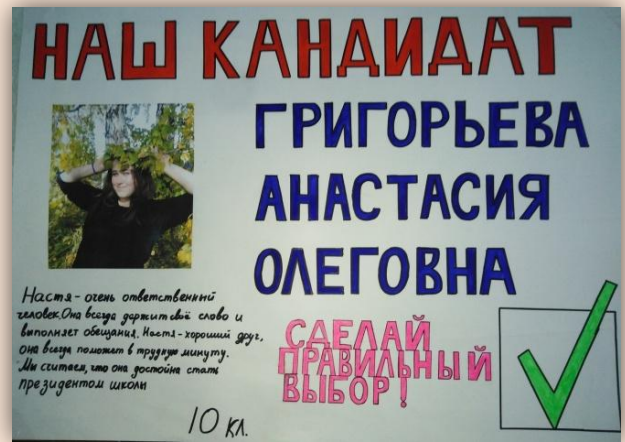 НАШ КАНДИДАТ
ГРИГОРЬЕВА
АНАСТАСИЯ
ОЛЕГОВНА
Настя - очень ответственный
человек. Она всегда держит своё слово и
выполняет обещания. Настя - хороший друг,
она всегда поможет в трудную минуту.
Мы считаем, что она достойна стать
президентом школы
10 кл.
СДЕЛАЙ
ПРАВИЛЬНЫЙ
ВЫБОР!